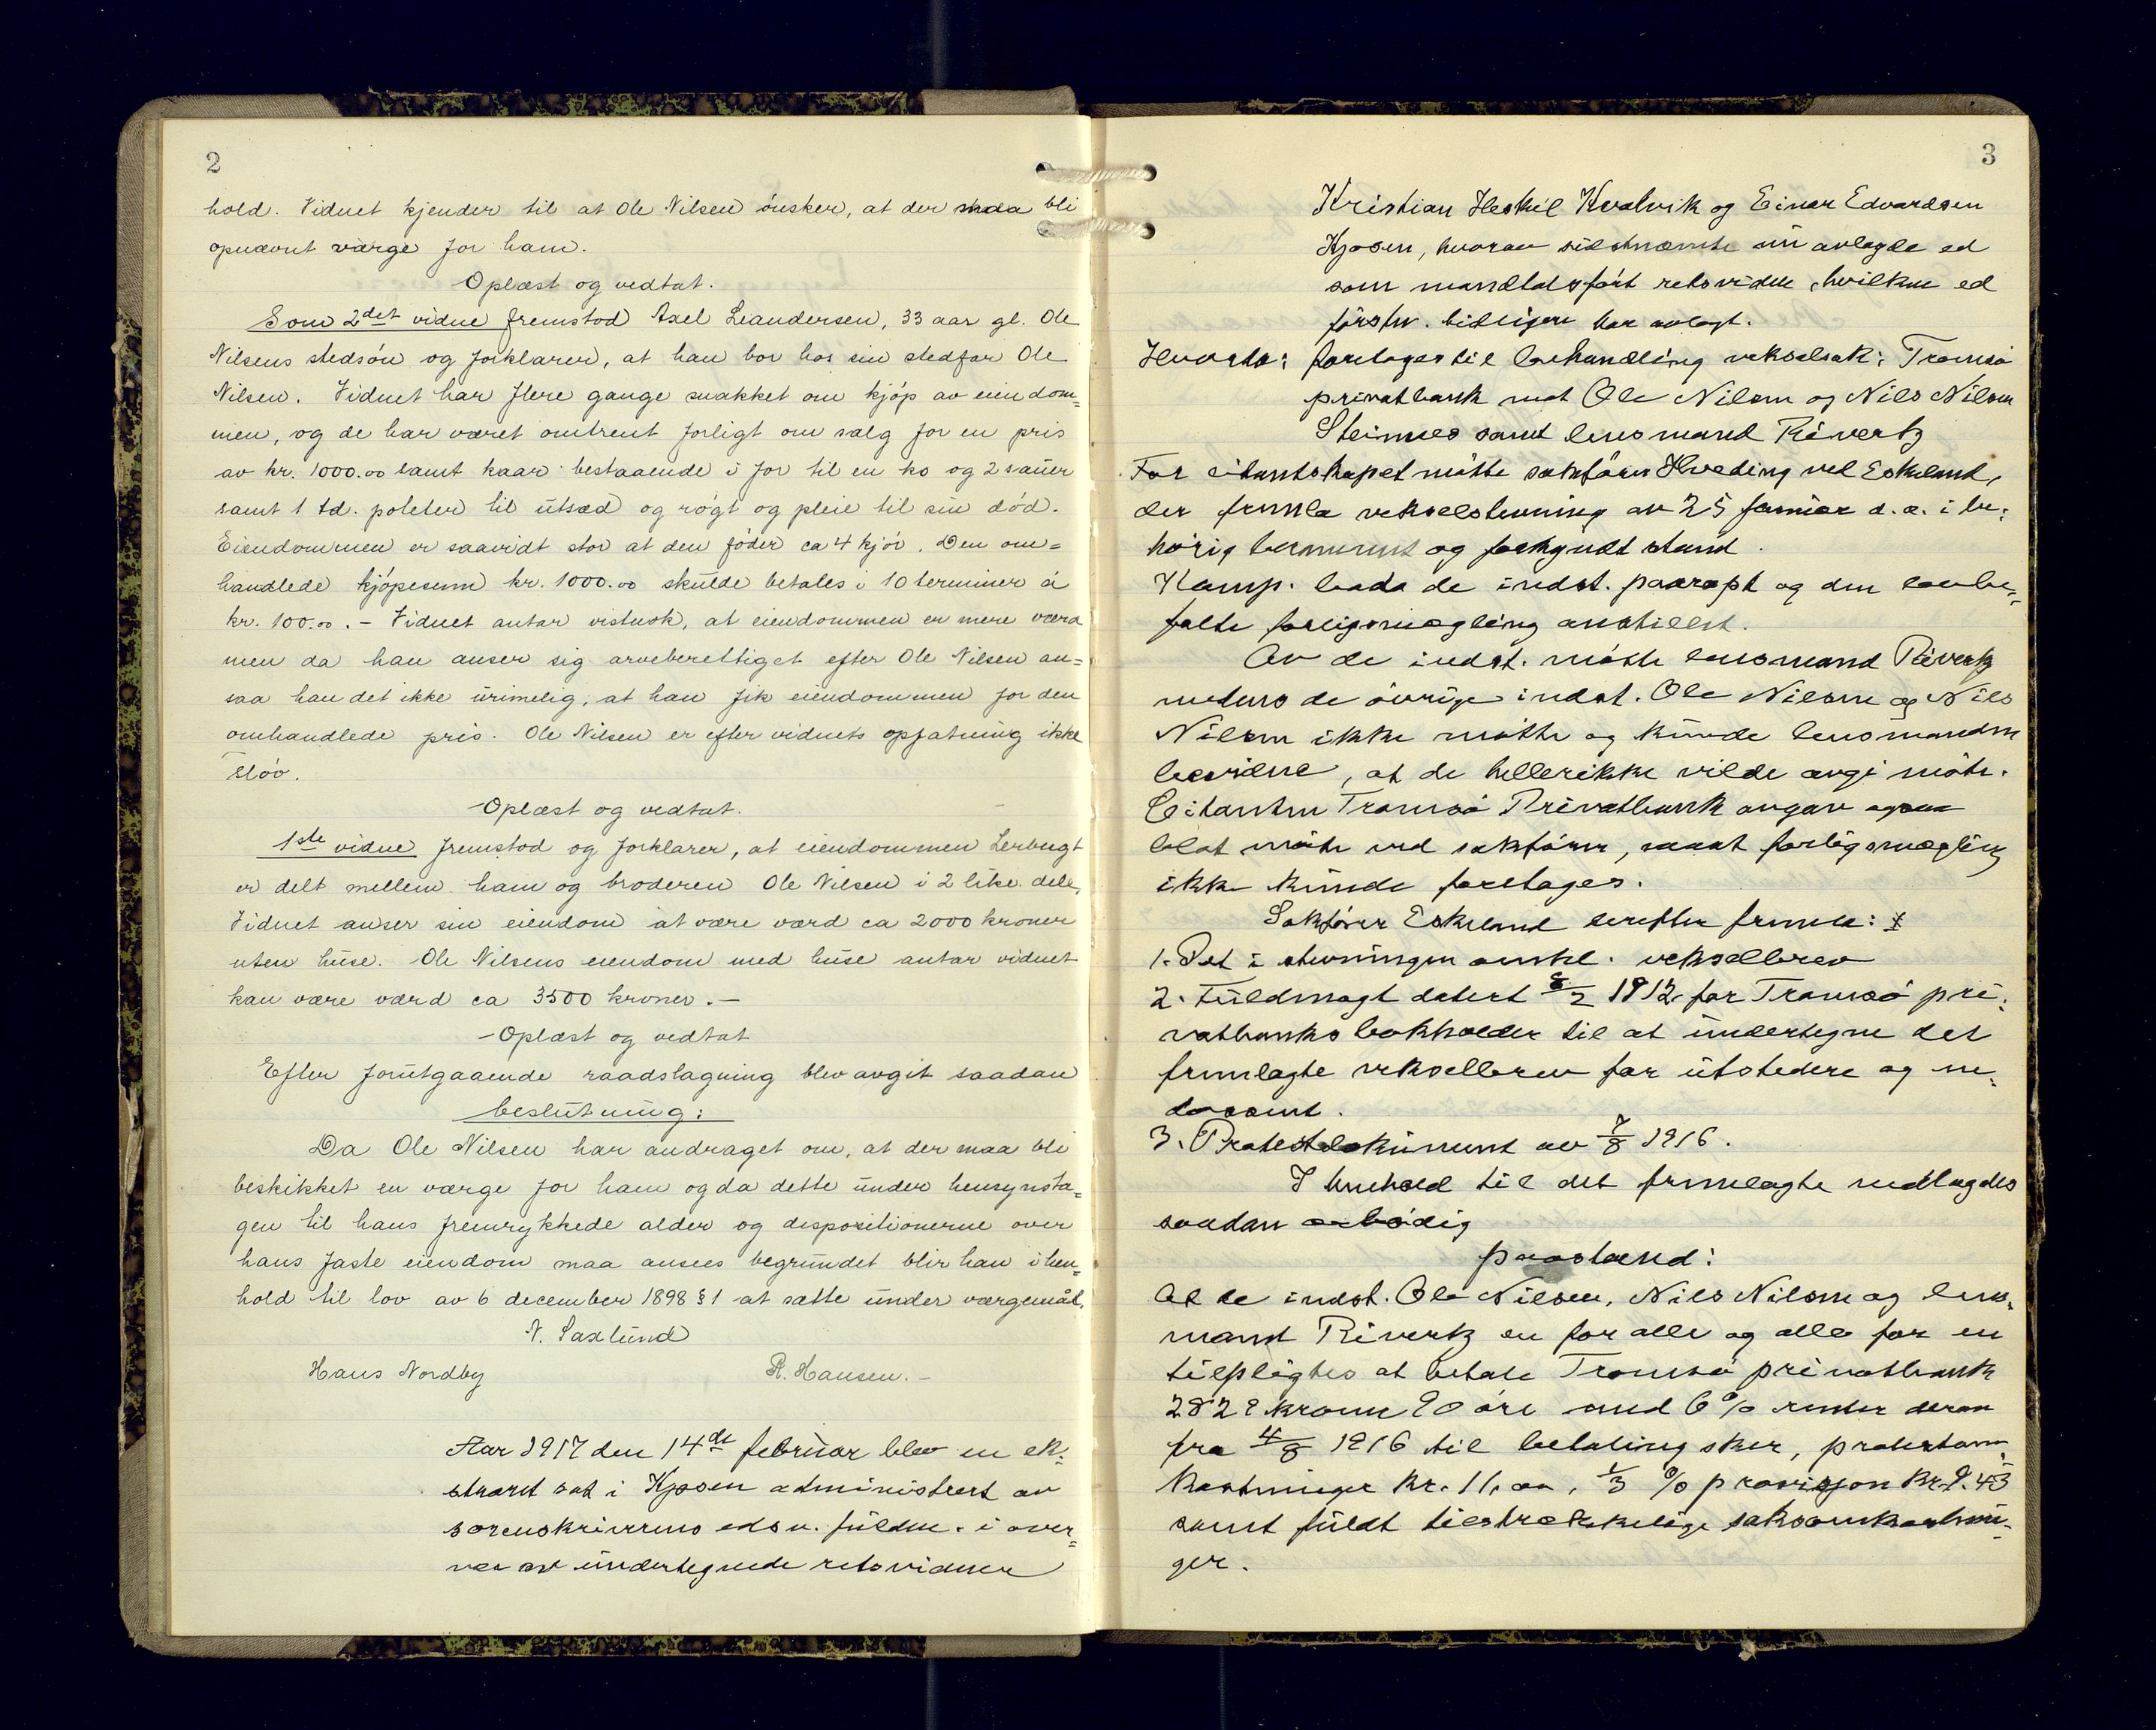 2
hold. Vidnet kjender til at Ole Nilsen ønsker, at der maa bli
opnævnt værge for ham.
Oplæst og vedtat.
Som 2det vidne fremstod Axel Leandersen, 33 aar gl. Ole
Nilsens stedsøn og forklarer, at han bor hos sin stedfar Ole
Nilsen. Vidnet har flere gange snakket om kjøp av eiendom=
men, og de har været omtrent forligt om salg for en pris
av kr. 1000.00 samt kaar bestaaende i for til en ko og 2 sauer
samt 1 td. poteter til utsæd og røgt og pleie til sin død.
Eiendommen er saavidt stor at den føder ca 4 kjør. Den om=
handlede kjøpesum kr. 1000.00 skulde betales i 10 terminer á
kr. 100.00. – Vidnet antar vistnok, at eiendommen er mere værd
men da han anser sig arveberettiget efter Ole Nilsen an=
saa han det ikke urimelig, at han fik eiendommen for den
omhandlede pris. Ole Nilsen er efter vidnets opfatning ikke
sløv.
Oplæst og vedtat.
1ste vidne fremstod og forklarer, at eiendommen Lerbugt
er delt mellem ham og broderen Ole Nilsen i 2 like dele,
Vidnet anser sin eiendom at være værd ca 2000 kroner
uten huse. Ole Nilsens eiendom med huse antar vidnet
kan være værd ca 3500 kroner. –
Oplæst og vedtat
Efter forutgaaende raadslagning blev avgit saadan
beslutning:
Da Ole Nilsen har andraget om, at der maa bli
beskikket en værge for ham og da dette under hensynsta=
gen til hans fremrykkede alder og dispositionerne over
hans faste eiendom maa ansees begrundet blir han i hen=
hold til lov av 6 december 1898 § 1 at sætte under værgemål.
N. Saxlund
Hans Nordby R. Hansen. –
Aar 1917 den 14de februar blev en ek=
straret sat i Kjosen administrert av
sorenskriverens eds. fuldm. i over=
vær av undertegnede retsvidner
3
Kristian Heskil Kvalvik og Einar Edvardsen
Kjosen, hvorav sidstnævnte nu avlagde ed
som mandtalsført retsvidne, hvilken ed
førstn. tidligere har avlagt.
Hvorda: foretages til behandling vekselsak: Tromsø
privatbank mot Ole Nilsen og Nils Nilsen
Steinnes samt lensmand Rivertz
For citantskapet møtte sakfører Hveding ved Eskeland,
der fremla vekselstevning av 25 januar d. a. i be=
hørig berammet og forkyndt stand.
Komp. bada de indst. paaropt og den lovbe=
falte forligsmægling anstillet.
Av de indst. møtte lensmand Rivertz
mens de øvrige indst. Ole Nilsen og Nils
Nilsen ikke møtte og kunde lensmanden
bevidne, at de heller ikke vilde avgi møte.
Citanten Tromsø Privatbank avgav
blot møte ved sakfører, saaat forligsmægling
ikke kunde foretages.
Sakfører Eskeland derefter fremla:
1. Det i stevningen omhl. vekselbrev
2. Fuldmagt datert 8/2 1912 for Tromsø pri=
vatbanks bokholder til at undertegne det
fremlagte vekselbrev for utstedere og en=
dossent.
3. Protestdokument av 7/8 1916.
I henhold til det fremlagte nedlagdes
saadan ærbødig
paastand:
At de indst. Ole Nilsen, Nils Nilsen og lens=
mand Rivertz en for alle og alle for en
tilpligtes at betale Tromsø privatbank
2828 kroner 90 øre med 6% renter derav
fra 4/8 1916 til betaling sker, protestom=
kostninger kr. 11,00, 1/3 % provisjon kr. 9.43
samt fuldt tilstrækkelige saksomkostnin=
ger.